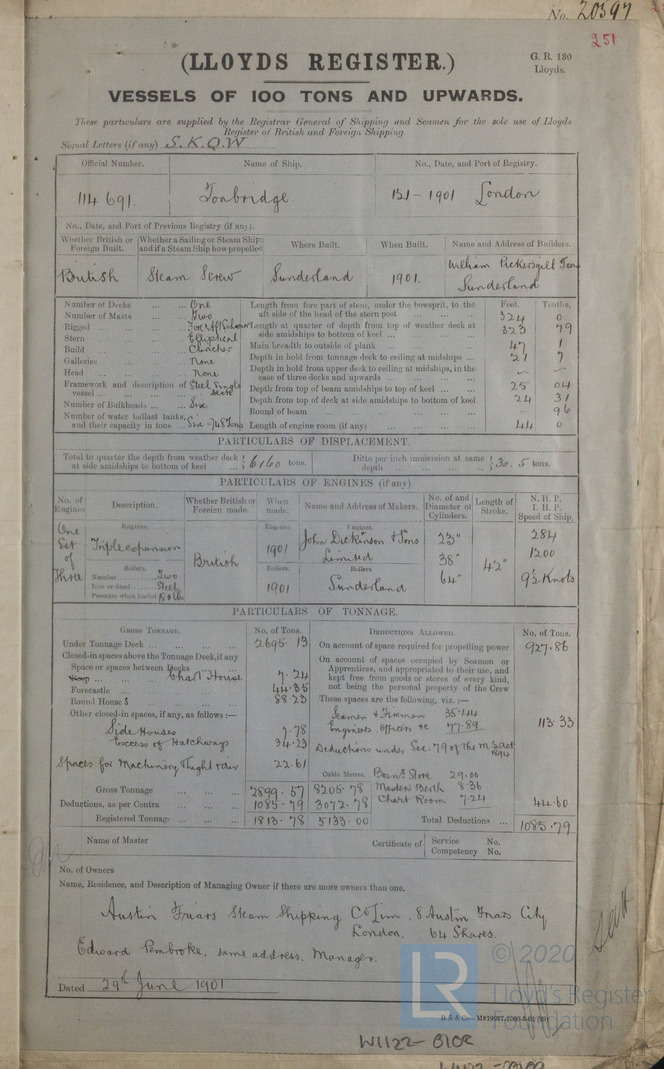 No. 20397
251
(LLOYDS REGISTER.)
G. R. 130
Lloyds.
VESSELS OF 100 TONS AND UPWARDS.
These particulars are supplied by the Registrar General of Shipping and Seamen for the sole use of Lloyds
Register of British and Foreign Shipping.
Signal Letters (if any) S.K.Q.W
Official Number. Name of Ship. No., Date, and Port of Registry.
114 691. Tonbridge. 121-1901 London
No., Date, and Port of Previous Registry (if any).
Whether British or Foreign Built. Whether a Sailing or Steam Ship; and if a Steam Ship how propelled Where Built. When Built. Name and Address of Builders.
British Steam Screw Sunderland 1901. William Pickersgill & Sons Sunderland
Number of Decks ... One
Number of Masts ... Two
Rigged ... Fore & Aft Schooner
Stern ... Elliptical
Build ... Clincher
Galleries ... None
Head ... None
Framework and description of vessel ... Steel Single Deck
Number of Bulkheads ... Six
Number of water ballast tanks, and their capacity in tons ... Six - 748 Tons
Feet. Tenths.
Length from fore part of stem, under the bowsprit, to the aft side of the head of the stern post ... 324 0
Length at quarter of depth from top of weather deck at side amidships to bottom of keel ... 323 79
Main breadth to outside of plank ... 47 1
Depth in hold from tonnage deck to ceiling at midships ... 21 7
Depth in hold from upper deck to ceiling at midships, in the case of three decks and upwards ... — —
Depth from top of beam amidships to top of keel ... 25 04
Depth from top of deck at side amidships to bottom of keel 24 31
Round of beam ... — 96
Length of engine room (if any) ... 44 0
PARTICULARS OF DISPLACEMENT.
Total to quarter the depth from weather deck at side amidships to bottom of keel ... 6160 tons. Ditto per inch immersion at same depth ... 30.5 tons.
PARTICULARS OF ENGINES (if any).
No. of Engines. Description. Whether British or Foreign made. When made. Name and Address of Makers. No. of and Diameter of Cylinders. Length of Stroke. N. H. P. I. H. P. Speed of Ship.
Engines. Engines. Engines.
One Set of Three Triple expansion British 1901 John Dickinson & Sons Limited 23" 38" 64" 42" 284 1200 9½ Knots
Boilers. Boilers. Boilers.
Number ... Two
Iron or Steel ... Steel
Pressure when loaded 180 lb.
1901 Sunderland
PARTICULARS OF TONNAGE.
GROSS TONNAGE. No. of Tons. DEDUCTIONS ALLOWED. No. of Tons.
Under Tonnage Deck ... 2695.13
Closed-in spaces above the Tonnage Deck, if any
Space or spaces between Decks
Poop ... Chart House 7.24
Forecastle ... 44.35
Round House s ... 88.23
Other closed-in spaces, if any, as follows:—
Side Houses 7.78
Excess of Hatchways 34.23
Spaces for Machinery & light & air 22.61
Gross Tonnage ... 2899.57 8205.78
Deductions, as per Contra ... 1085.79 3072.78
Registered Tonnage ... 1813.78 5133.00
On account of space required for propelling power 927.86
On account of spaces occupied by Seamen or Apprentices, and appropriated to their use, and kept free from goods or stores of every kind, not being the personal property of the Crew
These spaces are the following, viz.:—
Seamen & Firemen 35.44
Engineers, Officers &c 77.89
113.33
Deductions under Sec. 79 of the M S Act 1894
Cubic Metres. Bosn's Store 29.00
Masters Berth 8.36
Chart Room 7.24
44.60
Total Deductions ... 1085.79
Name of Master Certificate of Service No. Competency No.
No. of Owners
Name, Residence, and Description of Managing Owner if there are more owners than one.
Austin Friars Steam Shipping Co Lim. 8 Austin Friars City
London. 64 Shares.
Edward Pembroke, same address. Manager.
Dated 29th June 1901
© 2020
Lloyd's Register
Foundation
LR
W1122-0108